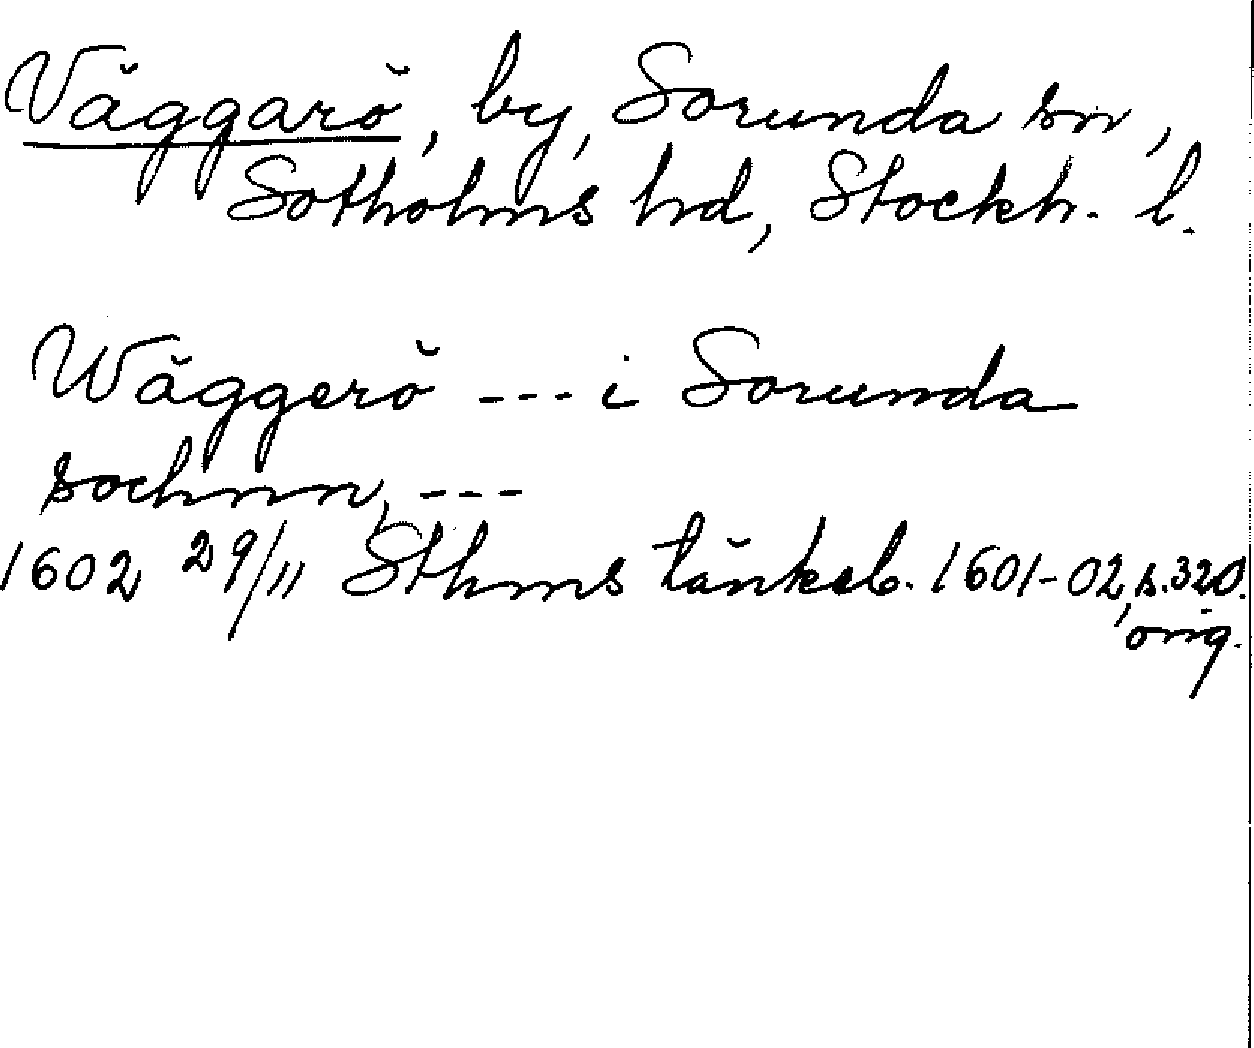 Väggarö, by, Sorunda sn,
Sotholms hd, Stockh. l.
Wäggerö --- i Sorunda
sochnn, ---
1602 29/11 Sthms tänkeb. 1601-02, s. 320.
orig.